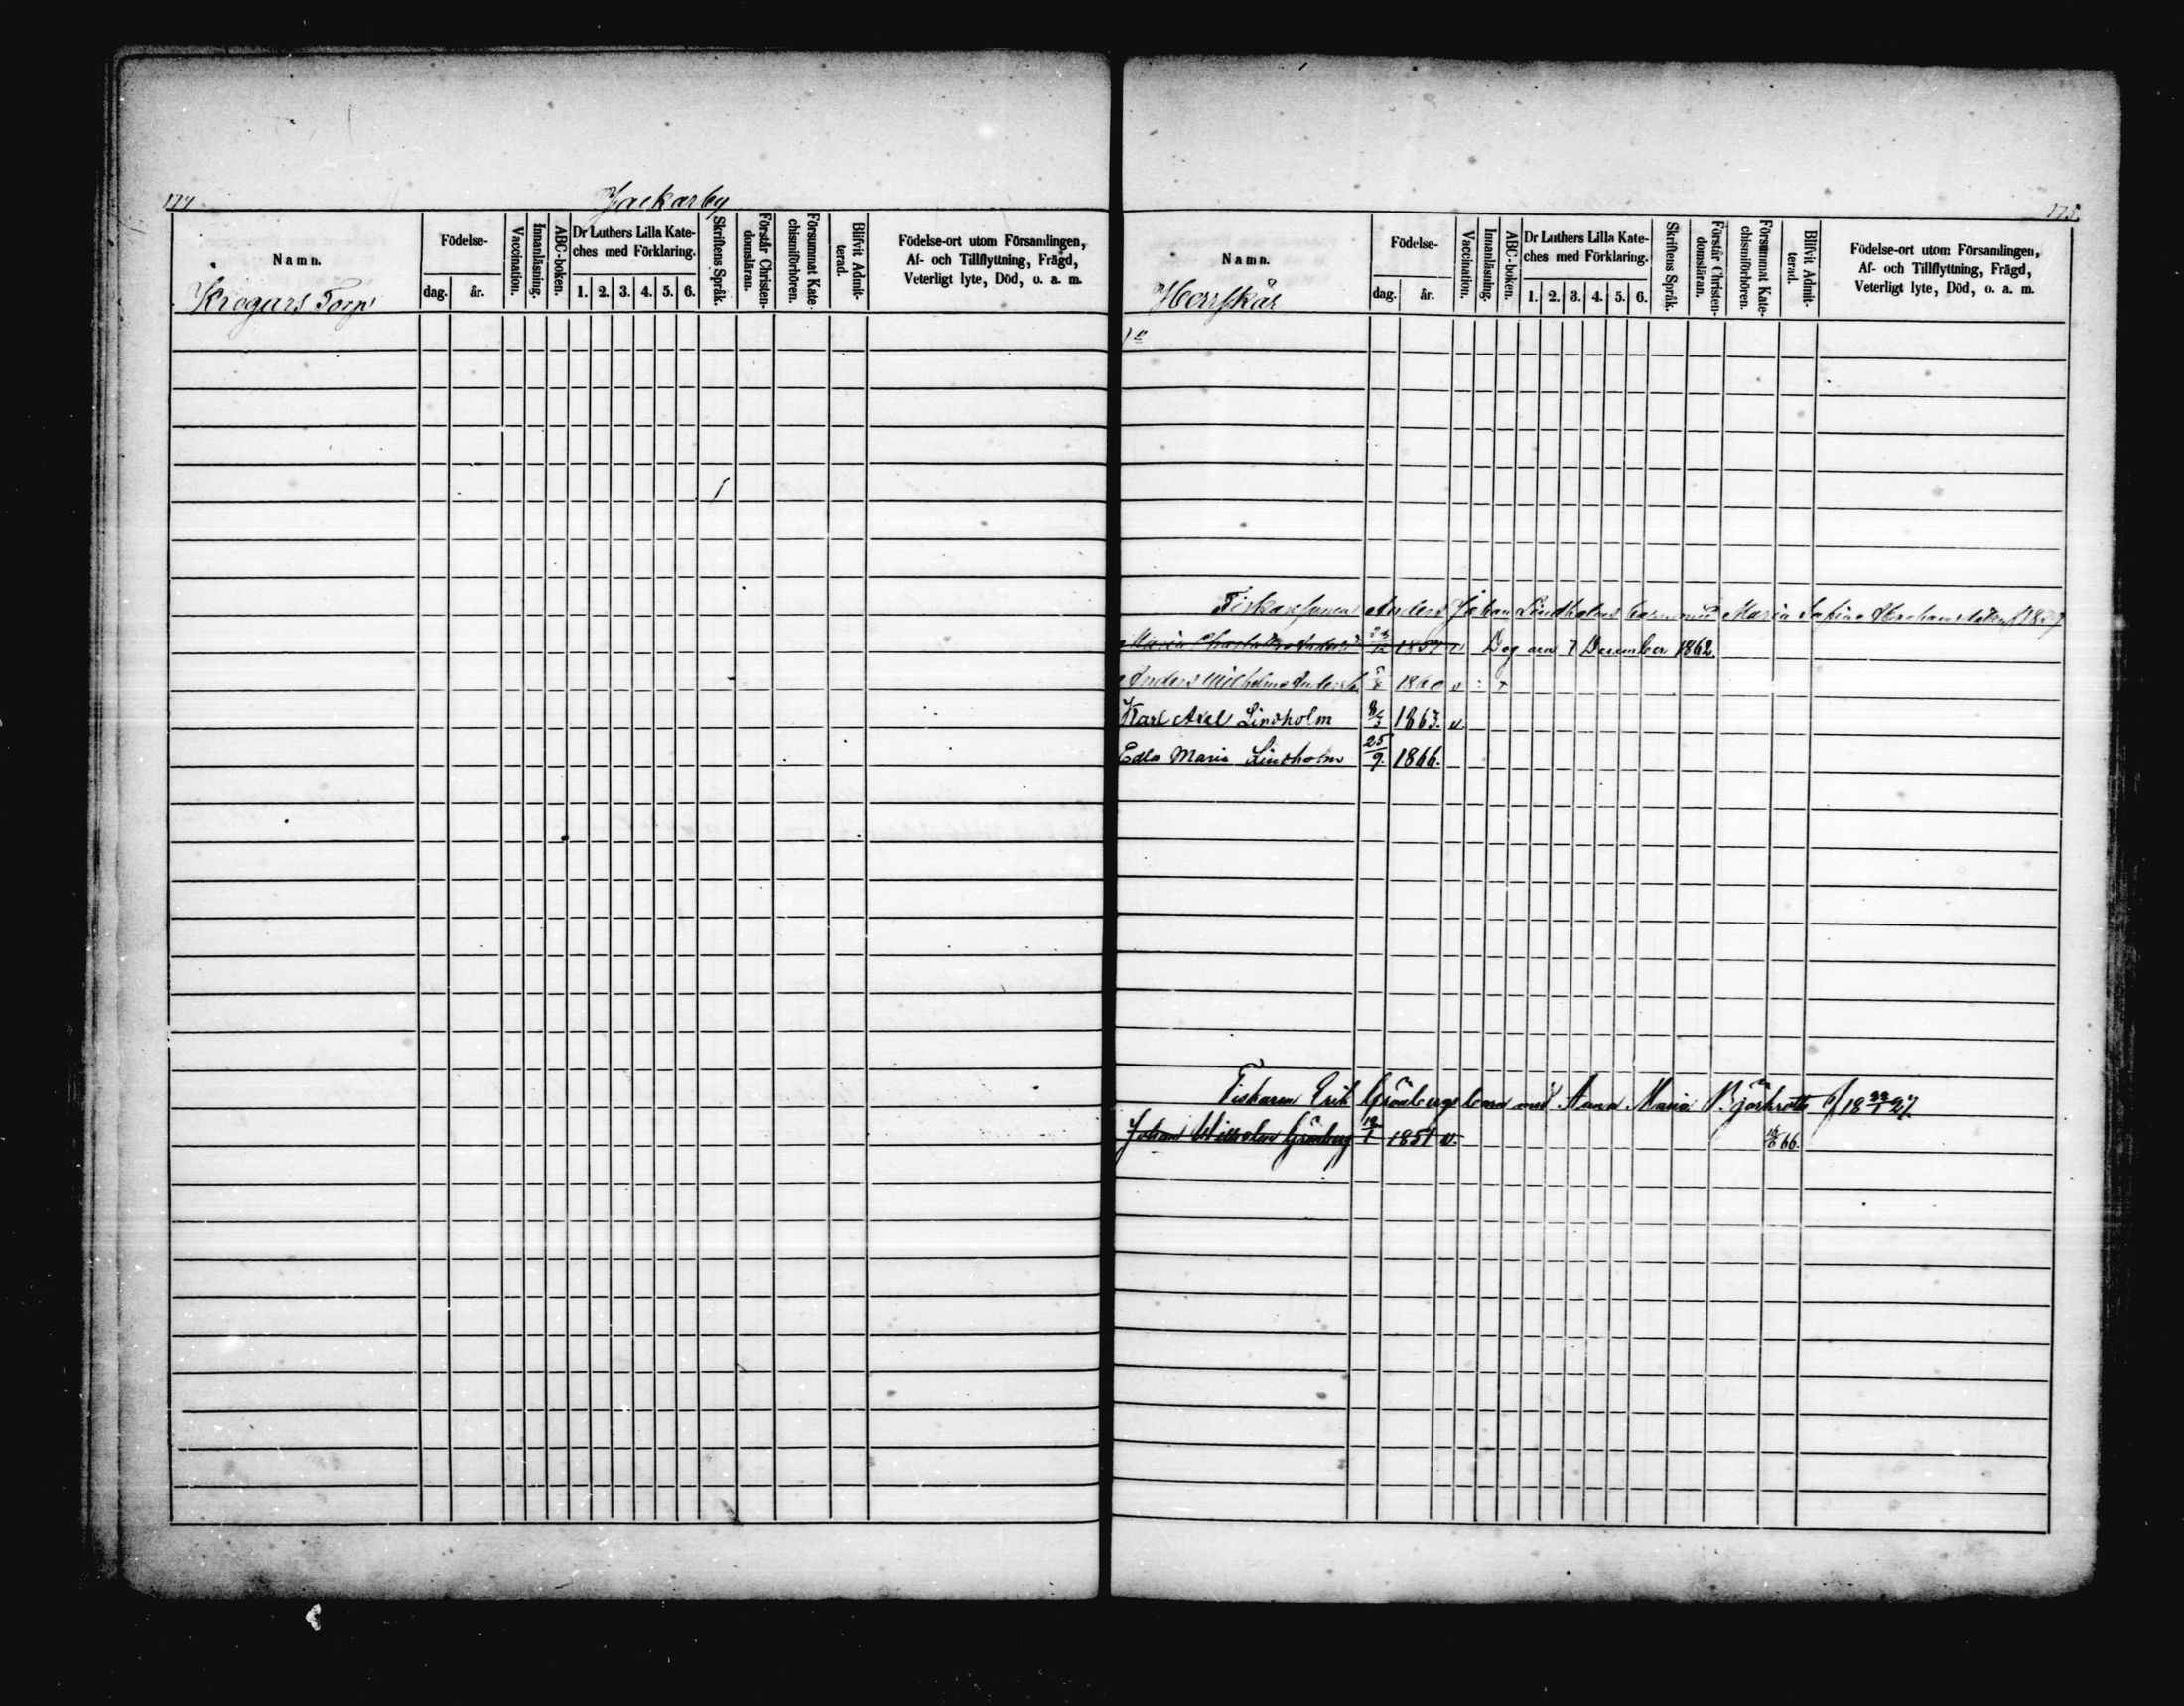 177 Jackarby
Namn. Födelse- dag. år. Vaccination. Innanläsning. ABC-boken. Dr Luthers Lilla Kate-ches med Förklaring. 1. 2. 3. 4. 5. 6. Skriftens Språk. Förstår Christen-domsläran. Försummat Kate-chismiförhören. Blifvit Admit-terad. Födelse-ort utom Församlingen, Af- och Tillflyttning, Frägd, Veterligt lyte, Död, o. a. m.
Krogars Torp
175.
Namn. Födelse- dag. år. Vaccination. Innanläsning. ABC-boken. Dr Luthers Lilla Kate-ches med Förklaring. 1. 2. 3. 4. 5. 6. Skriftens Språk. Förstår Christen-domsläran. Försummat Kate-chismiförhören. Blifvit Admit-terad. Födelse-ort utom Församlingen, Af- och Tillflyttning, Frägd, Veterligt lyte, Död, o. a. m.
Horrskär
Anders Johan Lindholms barn med Maria
Maria 1857 v Dog den 7 December 1862
Anders Wilhelm 1860 v
Karl Axel Lindholm 8/3 1863. v
Edla Maria Lindholm 25/9. 1866.
Fiskaren Erik Grönbergs barn med Anna Maria f/18 22/1 27
Johan Wilhelm Grönberg 1851 v. 66.